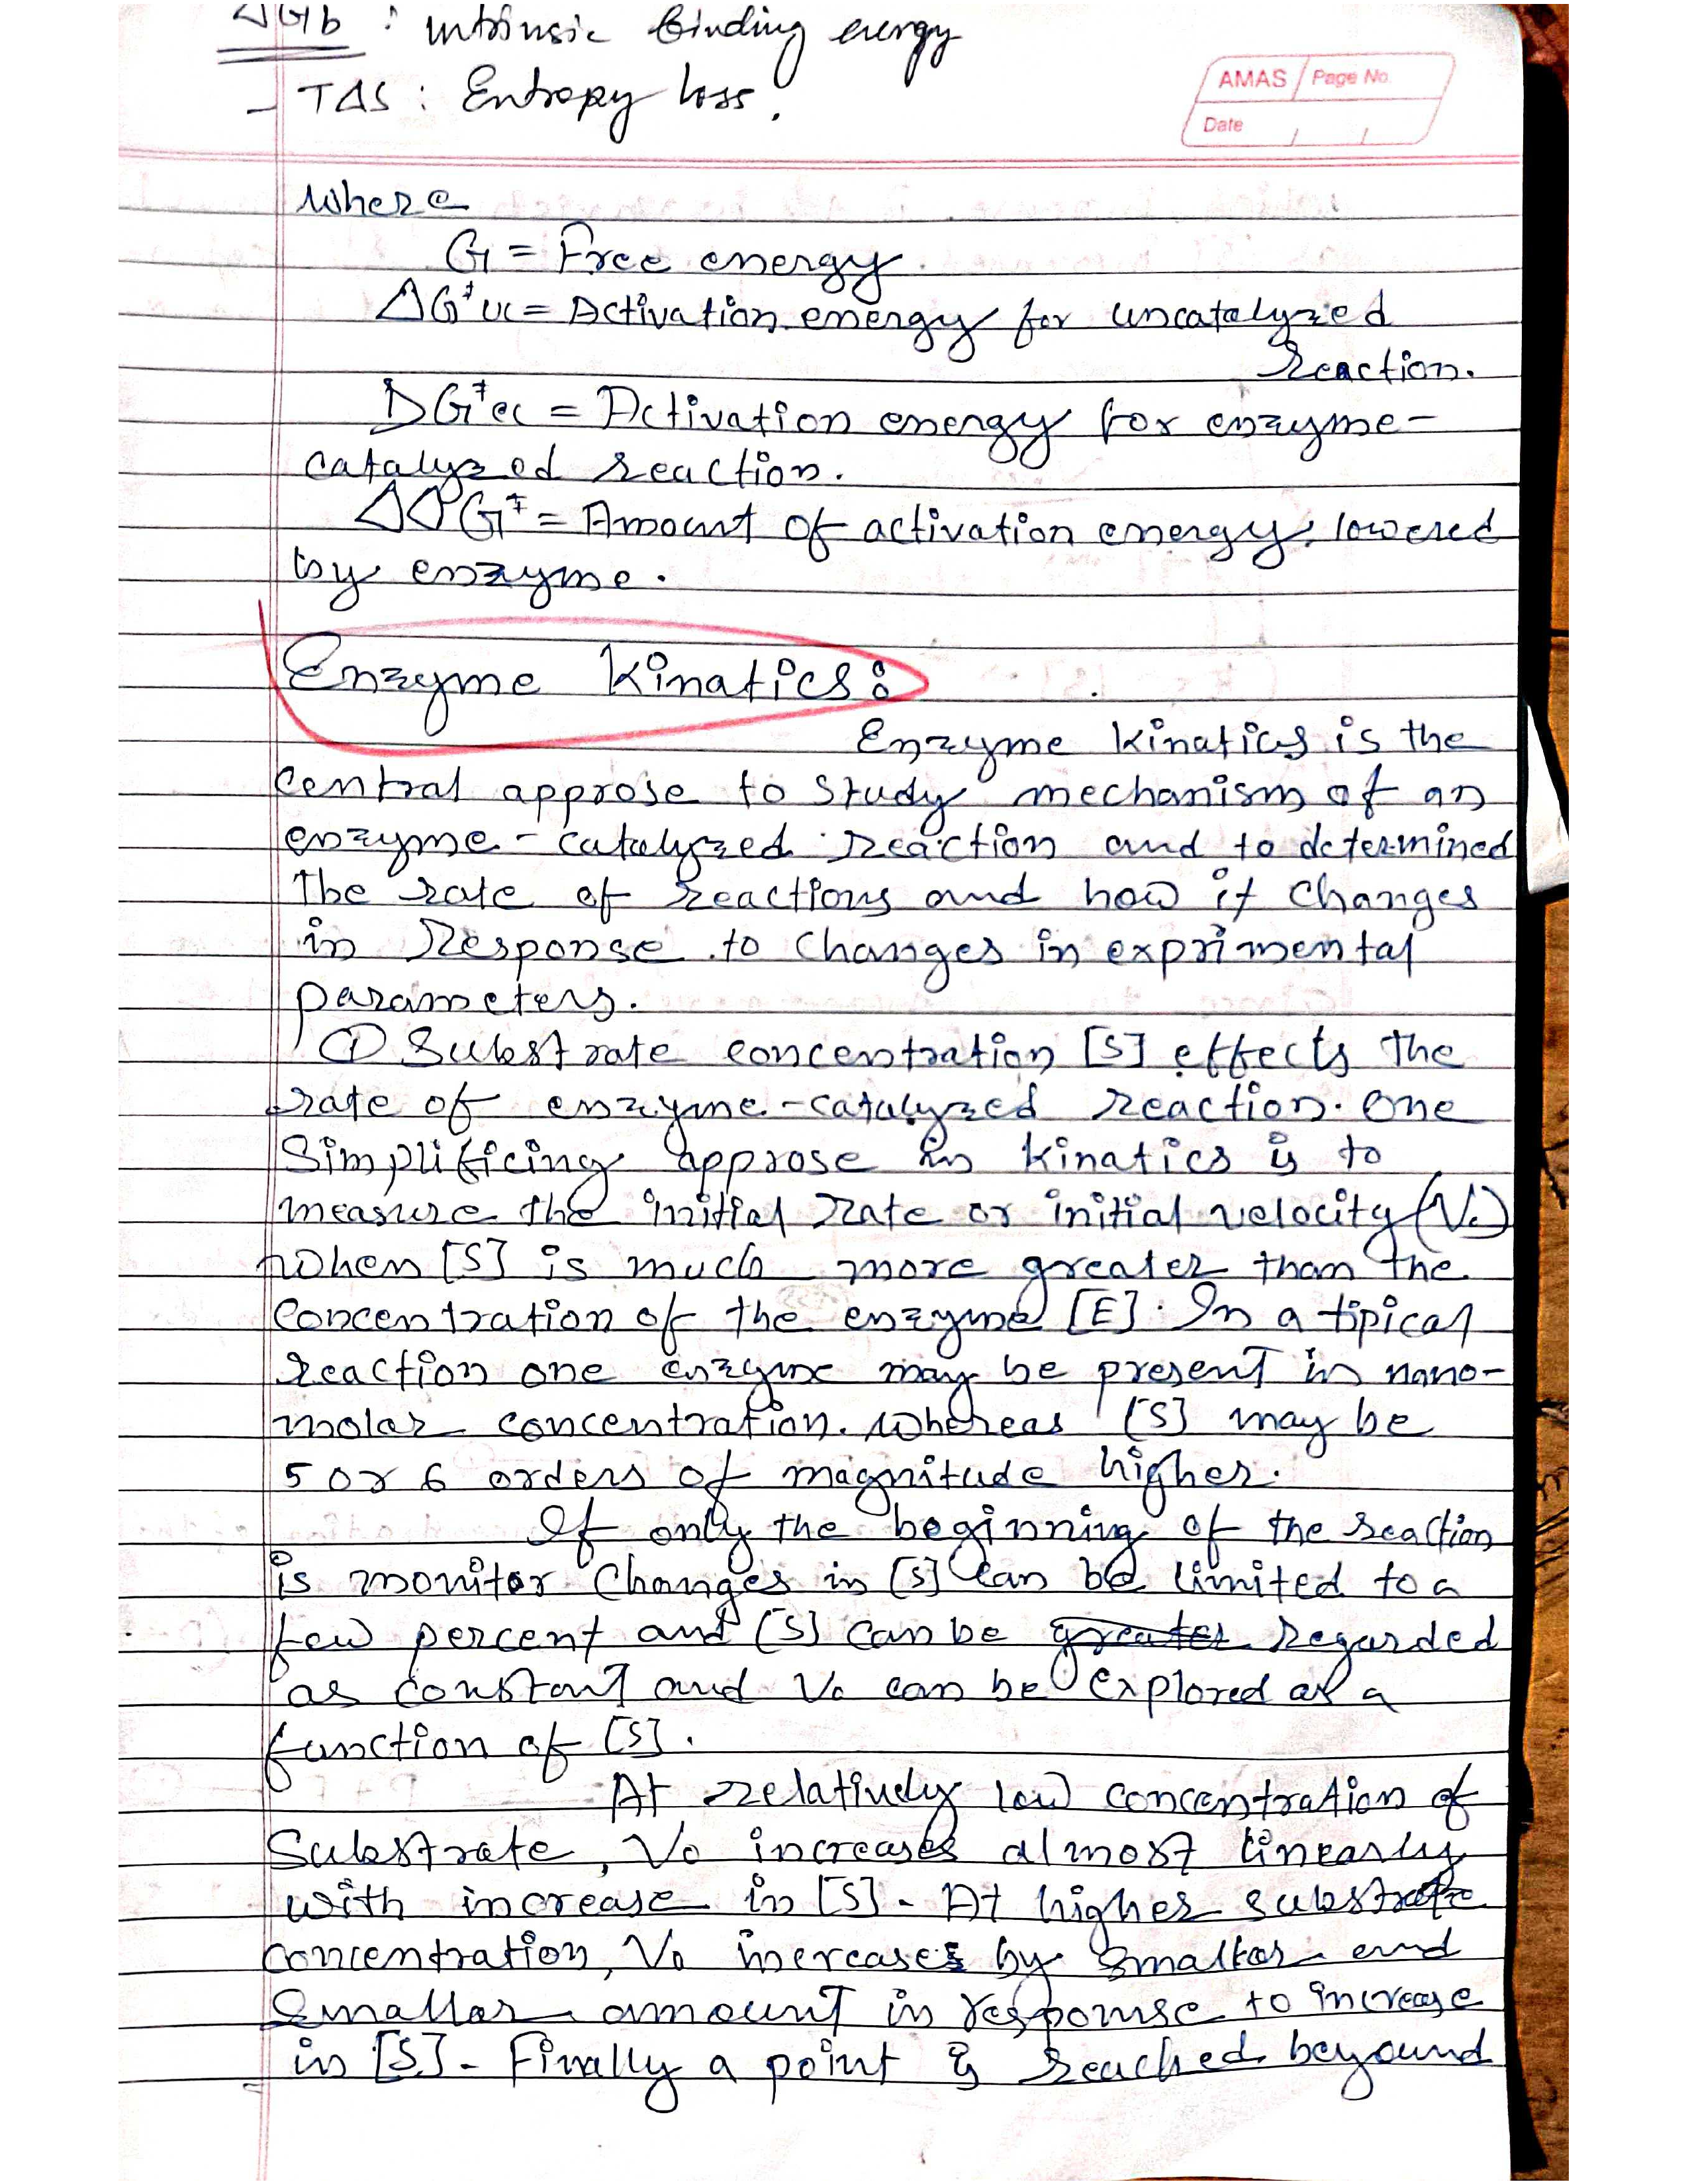 ΔGb : intrinsic binding energy
- TΔS : Entropy loss.
AMAS Page No.
Date / /
where
G = Free energy.
ΔG‡uc = Activation energy for uncatalyzed
reaction.
ΔG‡ec = Activation energy for enzyme-
catalyzed reaction.
ΔΔG‡ = Amount of activation energy lowered
by enzyme.
Enzyme Kinatics:
Enzyme kinatics is the
central approse to study mechanism of an
enzyme-catalyzed reaction and to determined
the rate of reactions and how it changes
in Response to changes in exprimental
parameters.
① Substrate concentration [S] effects the
rate of enzyme-catalyzed reaction. one
Simplificing approse in kinatics is to
measure the initial rate or initial velocity (V₀)
when [S] is much more greater than the
concentration of the enzyme [E]. In a tipical
reaction one enzyme may be present in nano-
molar concentration. whereas [S] may be
5 or 6 orders of magnitude higher.
If only the beginning of the reaction
is monitor changes in [S] can be limited to a
few percent and [S] can be greater regarded
as constant and V₀ can be explored as a
function of [S].
At relatively low concentration of
Substrate, V₀ increases almost linearly
with increase in [S]. At higher substrate
concentration, V₀ increases by smallar and
smallar amount in response to increase
in [S]. Finally a point is reached beyound